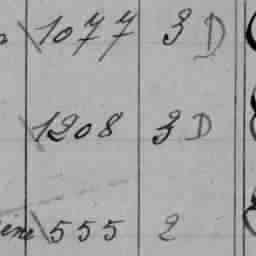 1077 3 D
1208 3 D
ine 555 2